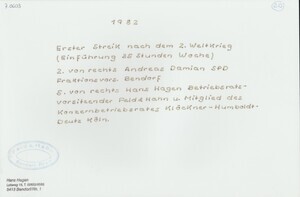 1982
Erster Streik nach dem 2. Weltkrieg
(Einführung 35 Stunden Woche)
2. von rechts Andreas Damian SPD
Fraktionsvors. Bendorf
5. von rechts Hans Hagen Betriebsrats-
vorsitzender Feld & Hahn u. Mitglied des
Konzernbetriebsrates Klöckner-Humboldt-
Deutz Köln.
Hans Hagen
5413 Bendorf/Rh. 1